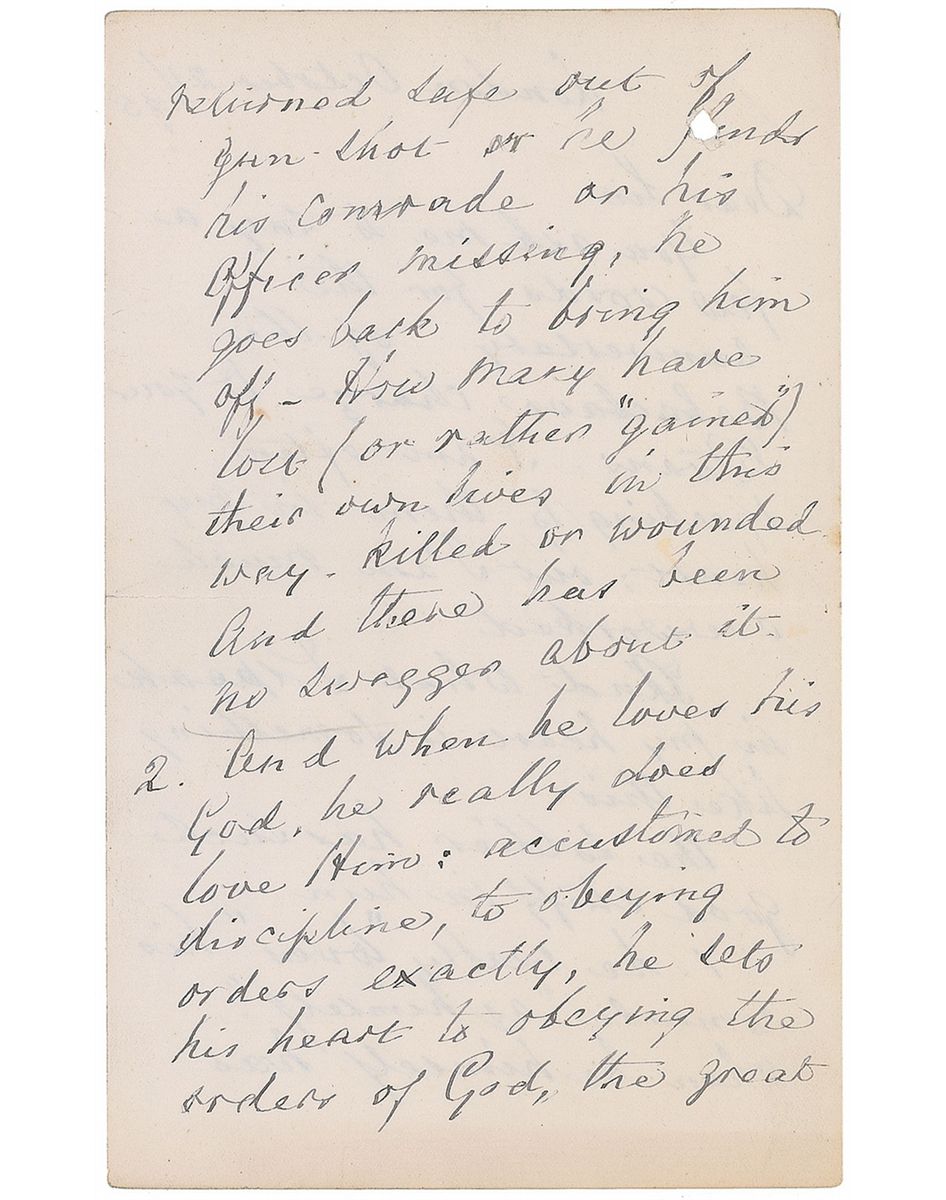 returned safe out of
gun-shot or he finds
his comrade or his
Officer missing, he
goes back to bring him
off - How many have
lost (or rather "gained")
their own lives in this
way - killed or wounded.
And there has been
no swagger about it.
2. And when he loves his
God, he really does
love Him: accustomed to
discipline, to obeying
orders exactly, he sets
his heart to obeying the
orders of God, the great